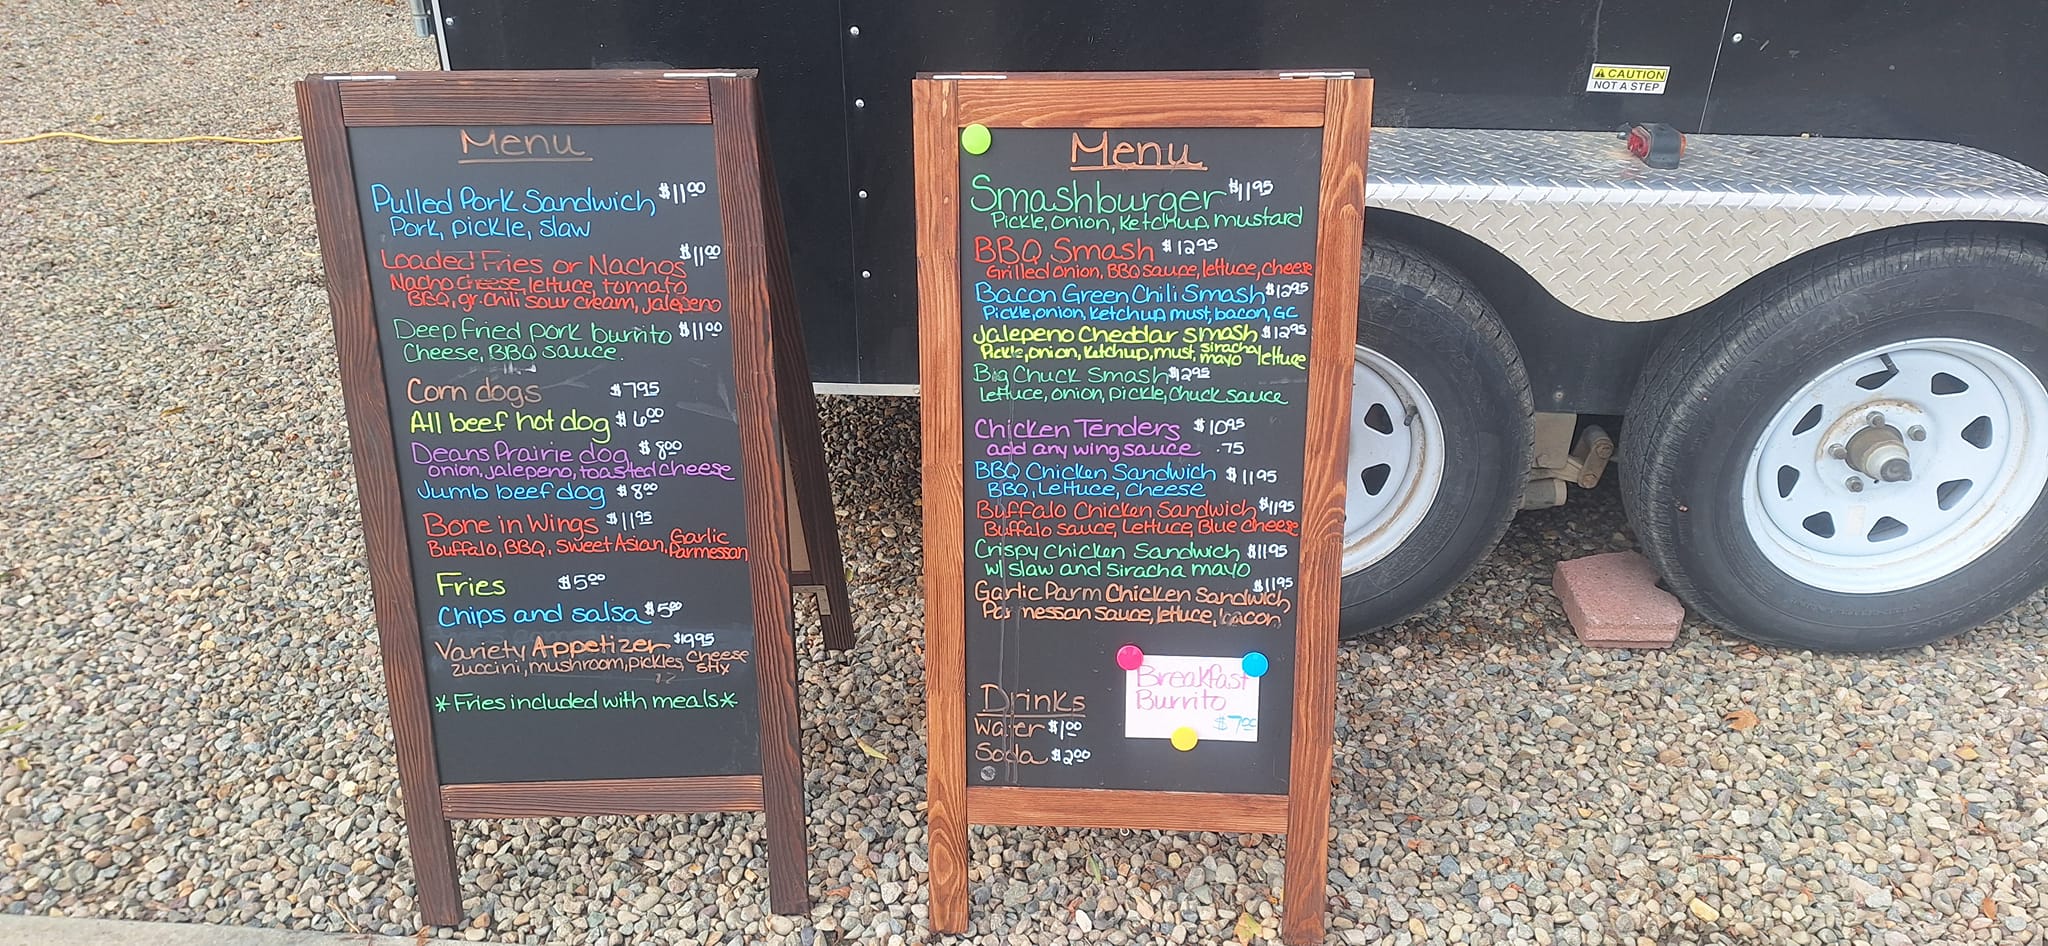 Menu
Pulled Pork Sandwich $11.00
Pork, pickle, slaw
Loaded Fries or Nachos $11.00
Nacho Cheese, lettuce, tomato
BBQ, gr. Chili sour cream, jalepeno
Deep fried pork burrito $11.00
Cheese, BBQ sauce.
Corn dogs $7.95
All beef hot dog $6.00
Deans Prairie dog $8.00
onion, jalepeno, toasted cheese
Jumb beef dog $8.00
Bone in Wings $11.95
Buffalo, BBQ, Sweet Asian, Garlic Parmessan
Fries $5.00
Chips and salsa $5.00
Variety Appetizer $19.95
zuccini, mushroom, pickles, Cheese Stix
*Fries included with meals*
Menu
Smashburger $11.95
Pickle, onion, Ketchup, mustard
BBQ Smash $12.95
Grilled onion, BBQ sauce, lettuce, cheese
Bacon Green Chili Smash $12.95
Pickle, onion, Ketchup, must, bacon, GC
Jalepeno Cheddar smash $12.95
Pickle, onion, Ketchup, must, siracha mayo lettuce
Big Chuck Smash $12.95
Lettuce, onion, pickle, Chuck sauce
Chicken Tenders $10.95
add any wing sauce .75
BBQ Chicken Sandwich $11.95
BBQ, Lettuce, Cheese
Buffalo Chicken Sandwich $11.95
Buffalo sauce, Lettuce, Blue Cheese
Crispy Chicken Sandwich $11.95
w/ slaw and siracha mayo
Garlic Parm Chicken Sandwich $11.95
Parmessan sauce, lettuce, bacon
Drinks
Water $1.00
Soda $2.00
Breakfast
Burrito
$7.00
CAUTION
NOT A STEP